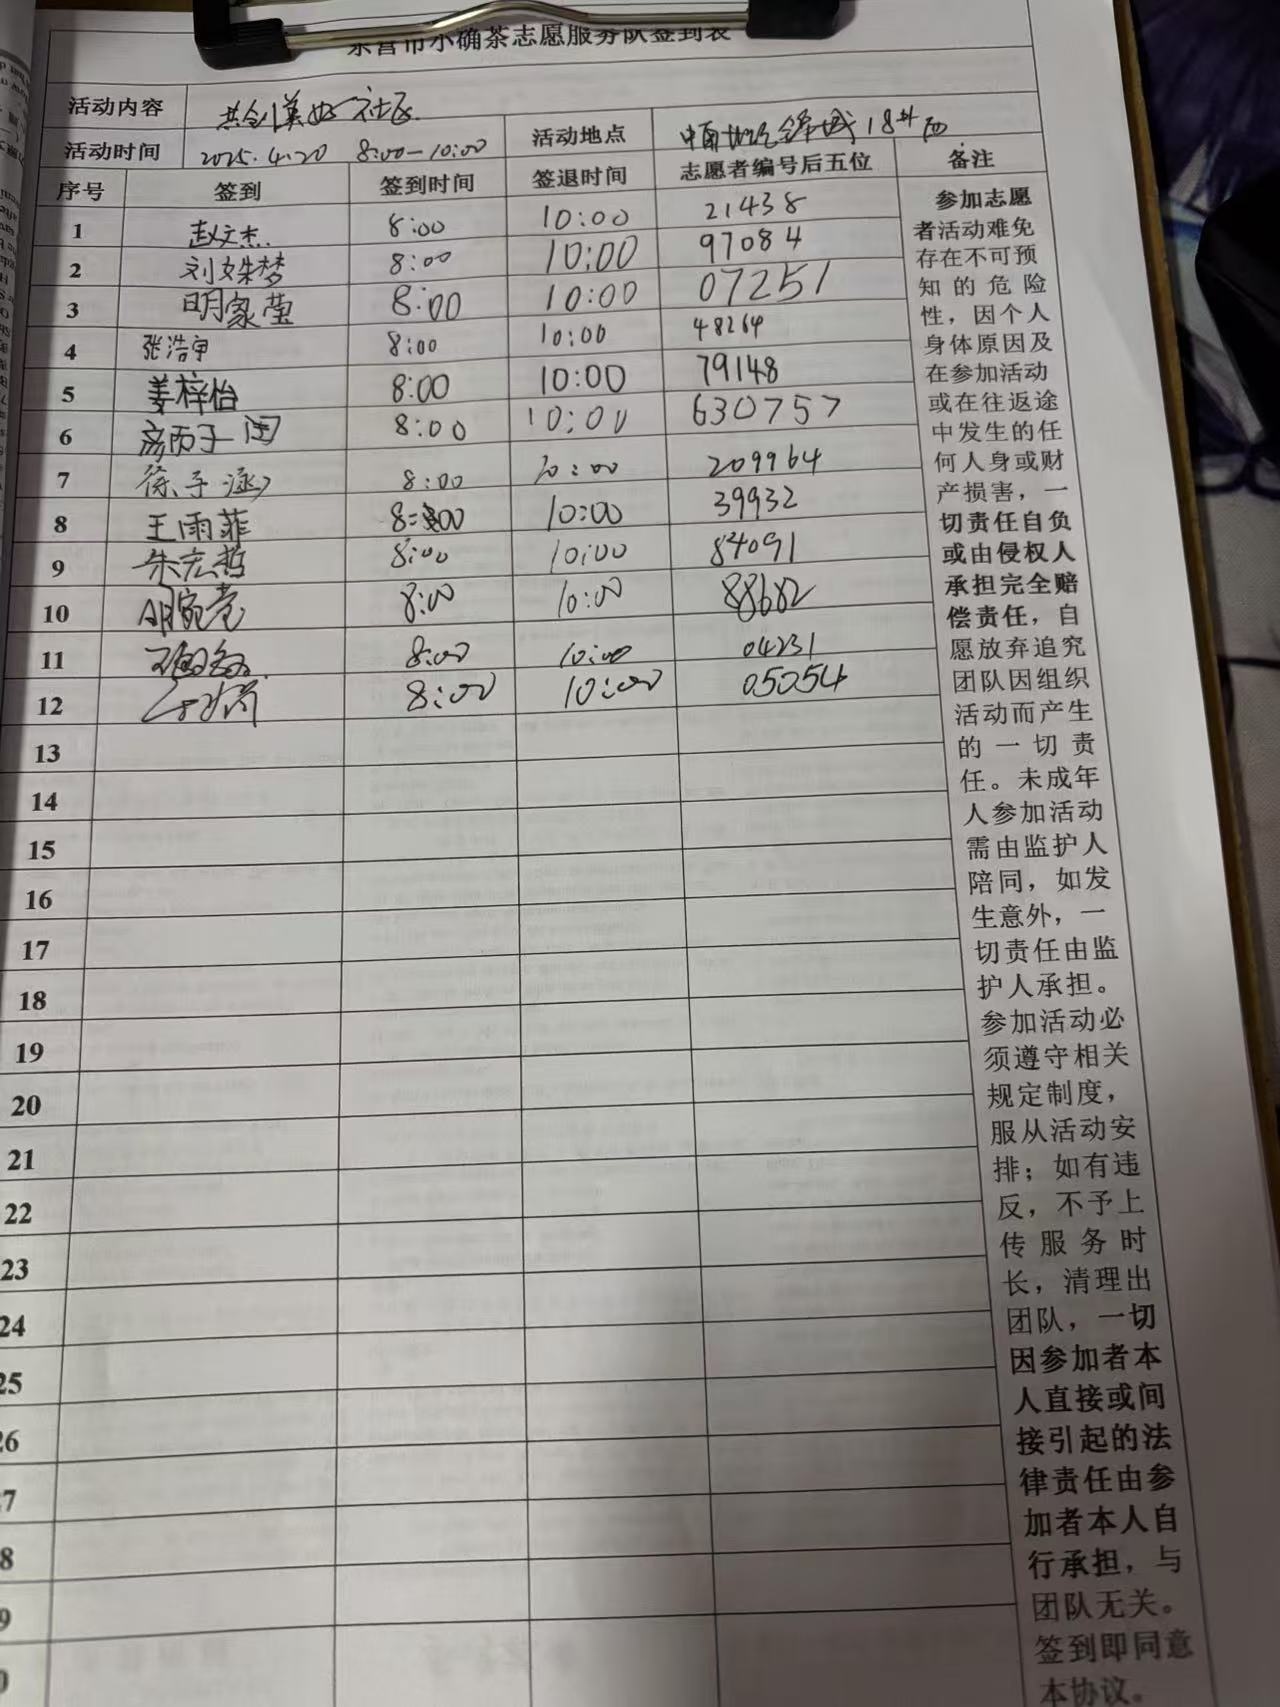 东营市小确茶志愿服务队签到表
活动内容 共创美好社区
活动时间 2025.4.20 8:00-10:00 活动地点 18#西
序号 签到 签到时间 签退时间 志愿者编号后五位 备注
1 赵文杰 8:00 10:00 21438
2 刘姝梦 8:00 10:00 97084
3 明家莹 8:00 10:00 07251
4 张浩宇 8:00 10:00 48264
5 姜梓怡 8:00 10:00 79148
6 8:00 10:00 630757
7 徐子涵 8:00 10:00 209964
8 王雨菲 8:00 10:00 39932
9 朱宏哲 8:00 10:00 84091
10 8:00 10:00 88682
11 8:00 10:00 04231
12 8:00 10:00 05054
13
14
15
16
17
18
19
20
21
22
23
24
25
26
7
8
9
0
参加志愿
者活动难免
存在不可预
知的危险
性，因个人
身体原因及
在参加活动
或在往返途
中发生的任
何人身或财
产损害，一
切责任自负
或由侵权人
承担完全赔
偿责任，自
愿放弃追究
团队因组织
活动而产生
的一切责
任。未成年
人参加活动
需由监护人
陪同，如发
生意外，一
切责任由监
护人承担。
参加活动必
须遵守相关
规定制度，
服从活动安
排；如有违
反，不予上
传服务时
长，清理出
团队，一切
因参加者本
人直接或间
接引起的法
律责任由参
加者本人自
行承担，与
团队无关。
签到即同意
本协议。